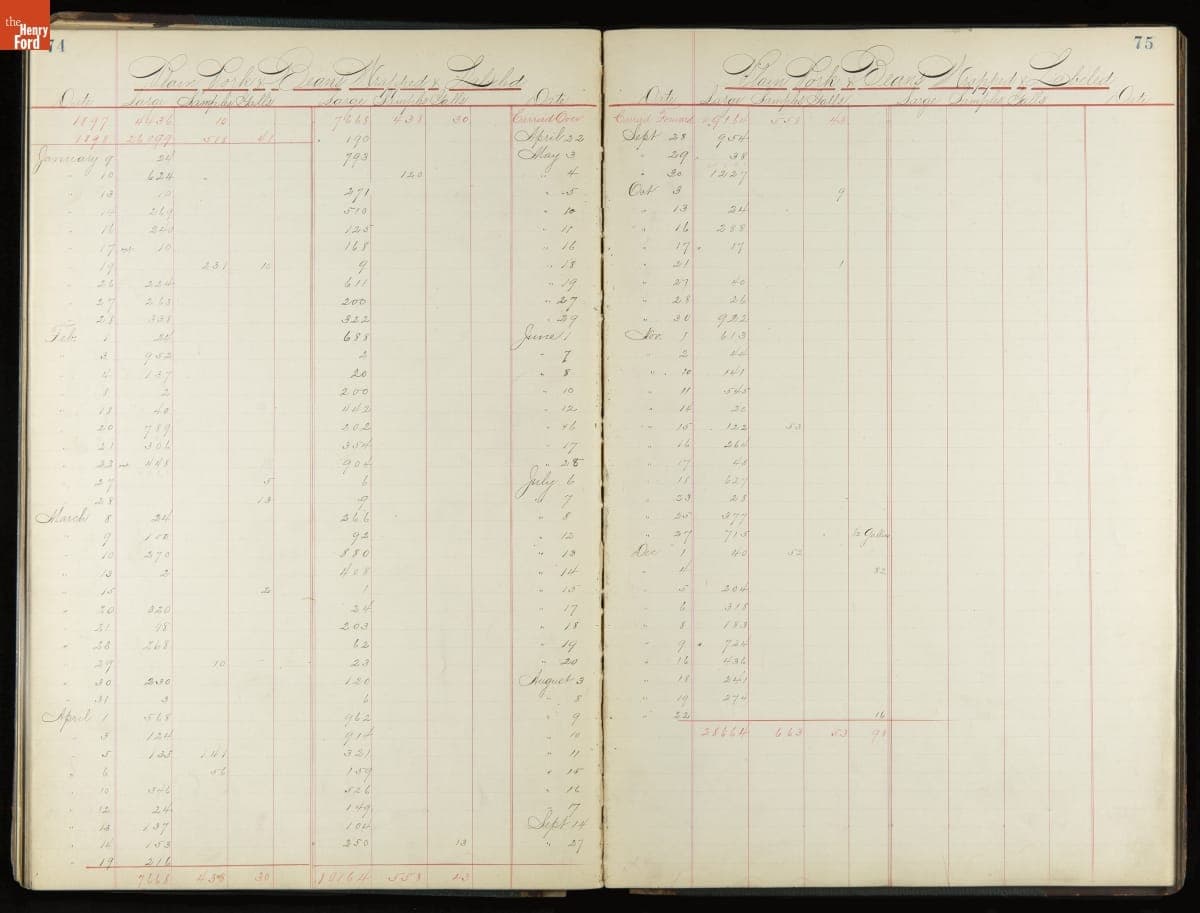 the
Henry
Ford
74
Plain Pork & Beans Wrapped & Labeled
Date Large Samples Galls Large Samples Galls Date
1897 4636 10 7668 438 30 Carried Over
1898 26099 518 41 190 April 22
January 9 24 793 May 3
" 10 624 120 " 4
" 13 10 271 " 5
" 14 269 510 " 10
" 16 240 125 " 11
" 17 10 168 " 16
" 19 231 10 9 " 18
" 26 224 611 " 19
" 27 263 200 " 27
" 28 338 322 " 29
Feb 1 24 688 June 1
" 3 952 2 " 7
" 4 137 20 " 8
" 8 2 200 " 10
" 18 40 442 " 12
" 20 789 202 " 16
" 21 306 354 " 17
" 23 448 904 " 28
" 27 5 6 July 6
" 28 13 9 " 7
March 8 24 266 " 8
" 9 100 92 " 12
" 10 270 880 " 13
" 13 2 408 " 14
" 15 2 1 " 15
" 20 320 24 " 17
" 21 98 203 " 18
" 28 268 62 " 19
" 29 10 23 " 20
" 30 230 120 August 3
" 31 3 6 " 8
April 1 568 962 " 9
" 3 124 914 " 10
" 5 133 141 321 " 11
" 6 56 159 " 15
" 10 346 526 " 16
" 12 24 149 " 17
" 13 137 104 Sept 14
" 14 153 250 13 " 27
" 19 216
7668 438 30 19164 558 43
75
Plain Pork & Beans Wrapped & Labeled
Date Large Samples Galls Large Samples Galls Date
Carried Forward 19164 558 43
Sept 28 954
" 29 38
" 30 1227
Oct 3 9
" 13 24
" 16 288
" 17 17
" 21 1
" 27 40
" 28 26
" 30 922
Nov. 1 613
" 2 44
" 10 141
" 11 545
" 14 20
" 15 122 53
" 16 264
" 17 48
" 18 627
" 23 28
" 25 377
" 27 715 1/2 Gallon
Dec 1 40 52
" 4 82
" 5 204
" 6 318
" 8 183
" 9 724
" 16 436
" 18 241
" 19 274
" 22 16
28664 663 53 98